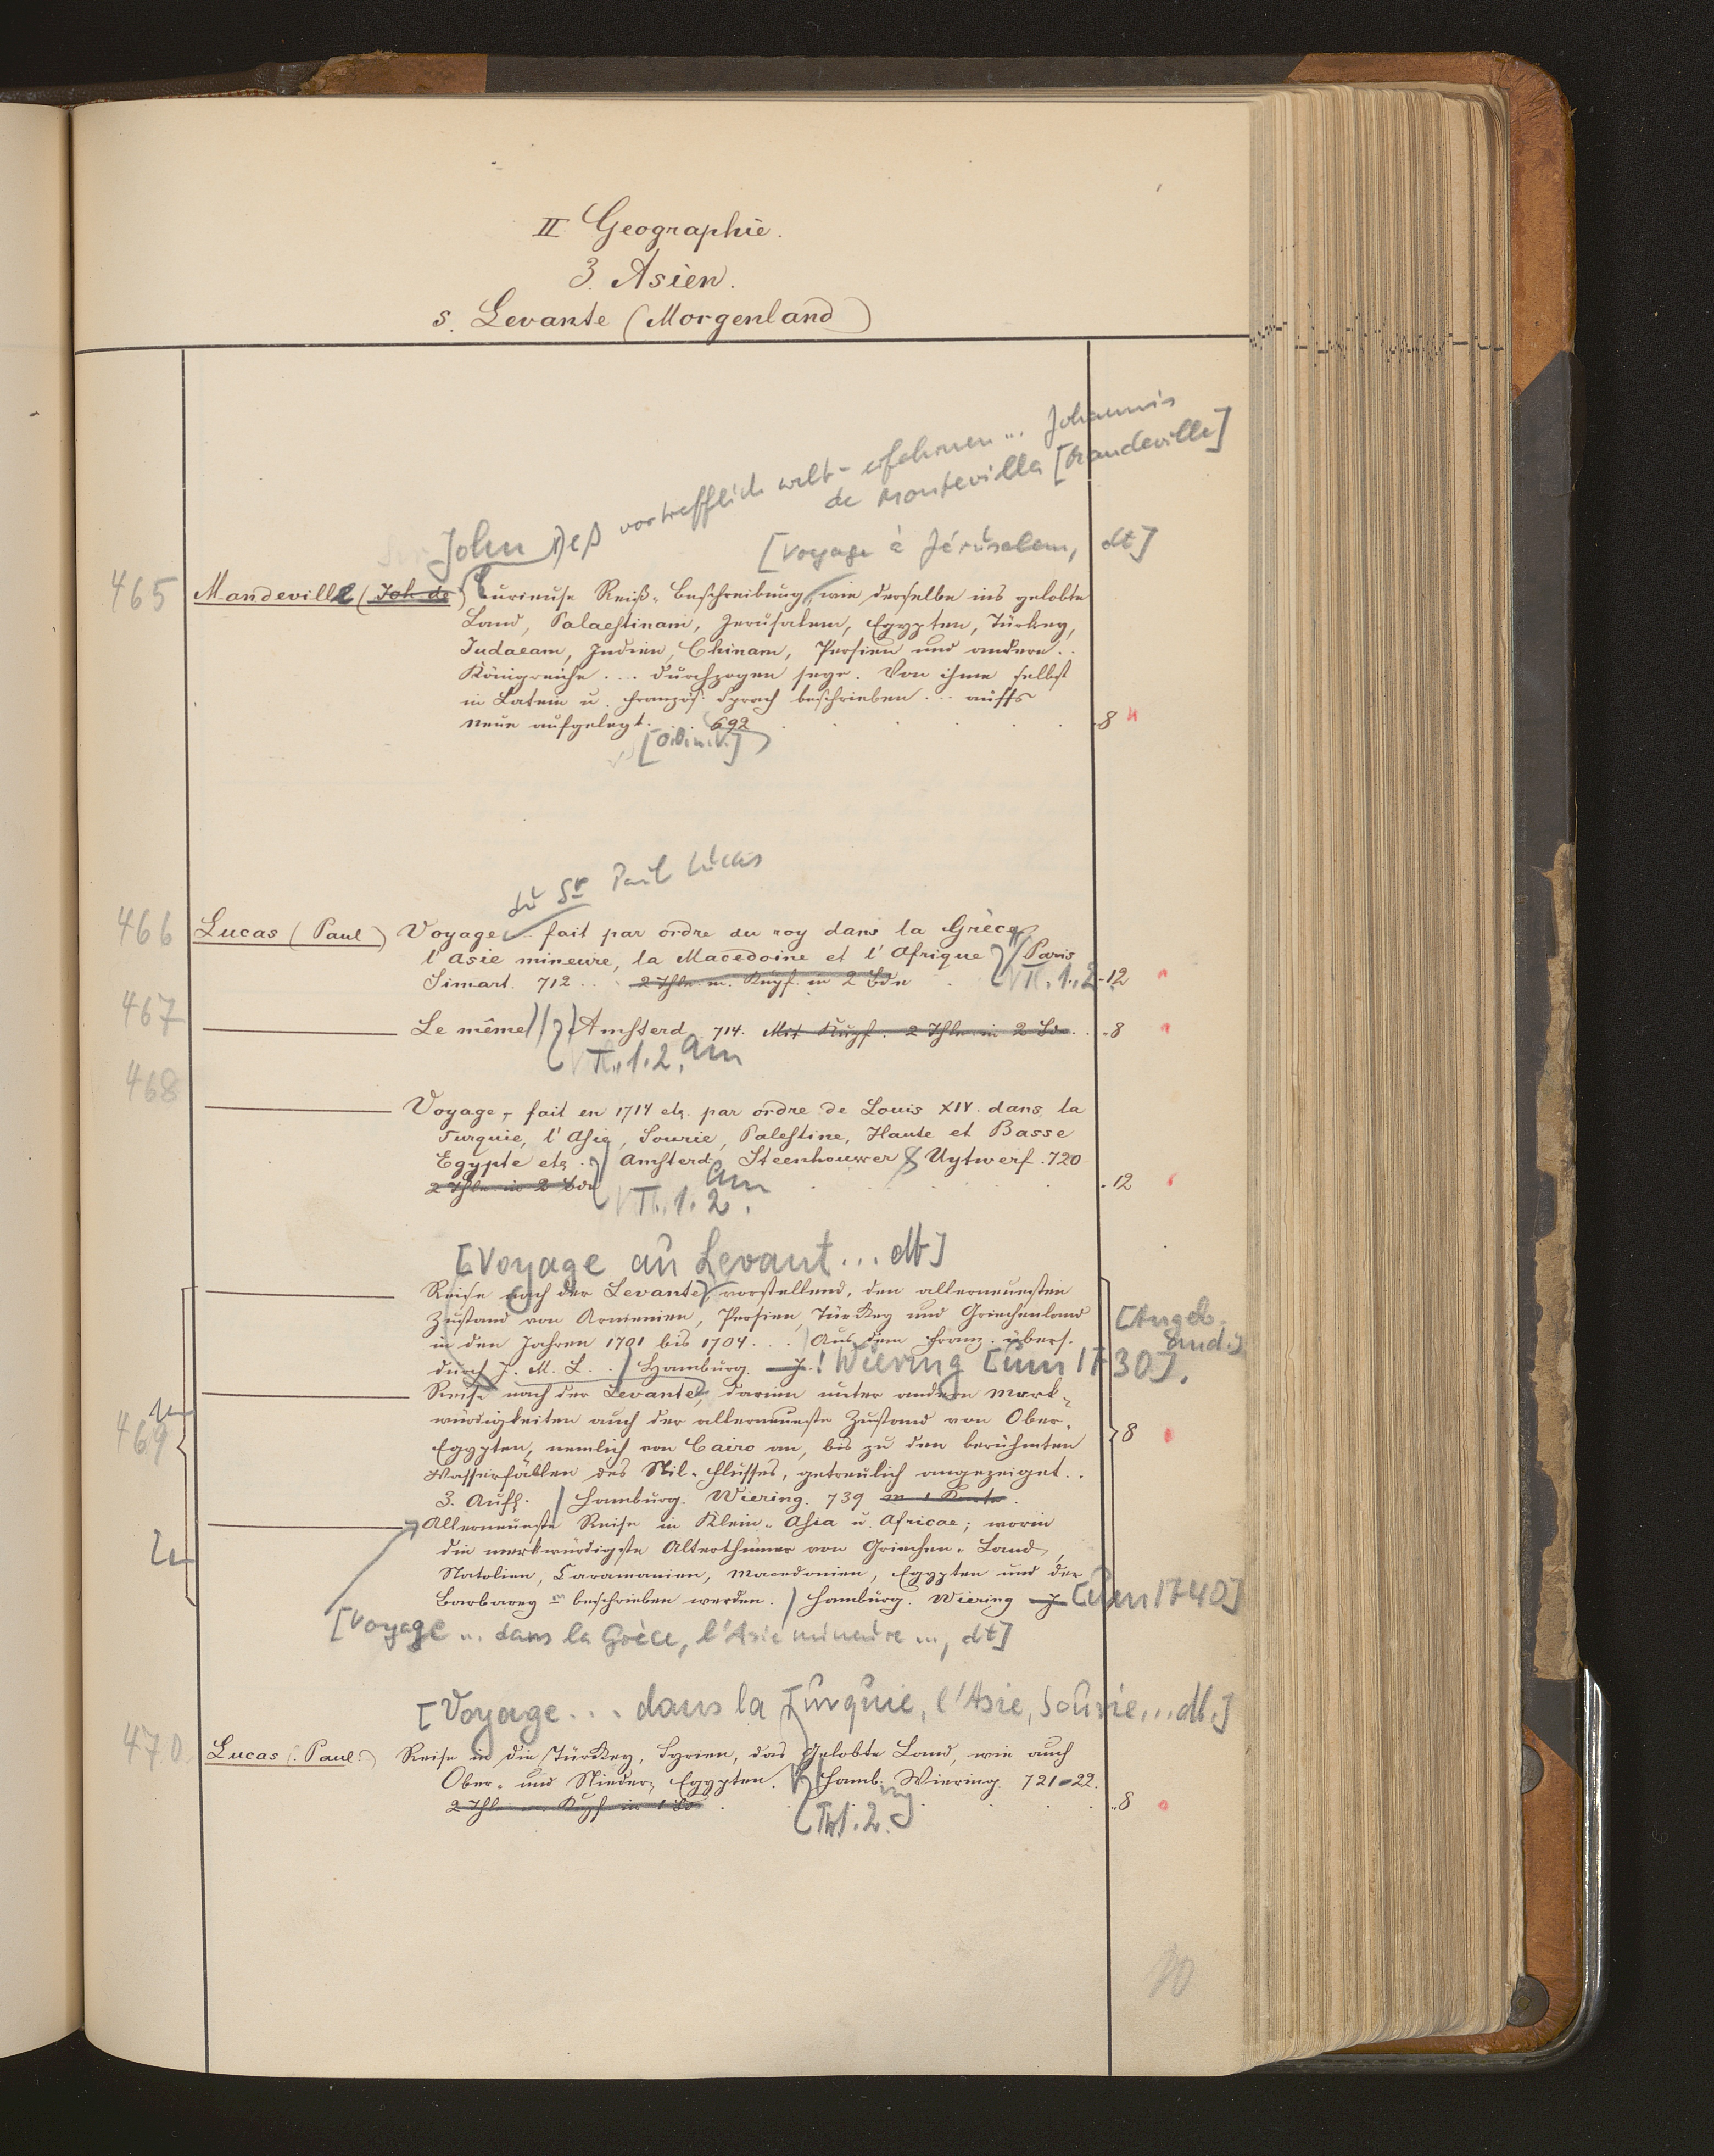 II Geographie.
3. Asien.
s. Levante (Morgenland)
John Deß vortrefflich welt-erfahrnen ... Johannis
de Montevilla [Mandeville]
[Voyage à Jérusalem, dt]
465 Mandeville (Joh de) Curieuse Reiß-Beschreibung, wie derselbe ins gelobte
Land, Palaestinam, Jerusalem, Egypten, Türkey,
Judaeam, Indien, Chinam, Persien und andere ..
Königreiche .... durchzogen seye. Von ihme selbst
in Latein u. französ. Sprach beschrieben ... auffs
neue aufgelegt. . . 692 . . . . . 8
[o.O.u.V.]
du Sr Paul Lucas
466 Lucas (Paul) Voyage .. fait par ordre du roy dans la Grèce,
l'Asie mineure, la Macedoine et l'Afrique Paris
Simart. 712 . . 2 Thle. m. Kupf. in 2 Bdn . T. 1. 2 - 12
467 Le même Amsterd. 714. Mit Kupf. 2 Thle in 2 Bdn. . 8
T. 1. 2. am
468
Voyage, fait en 1714 etc. par ordre de Louis XIV. dans la
Turquie, l'Asie, Sourie, Palestine, Haute et Basse
Egypte etc. . Amsterd. Steenhouwer & Uytwerf. 720
2 Thle in 2 Bdn am . . . . . 12
T. 1. 2.
[Voyage au Levant ... dt]
Reise nach der Levante, vorstellend, den allerneuesten
Zustand von Armenien, Persien, Türkey und Griechenland
in den Jahren 1701 bis 1704. . . Aus dem Franz. übers.
[Angeb.
durch J. M. L. . Hamburg. J. ! Wiering [um 1730].
sind.]
Reise nach der Levante, darinn unter andern Merk-
würdigkeiten auch der allerneueste Zustand von Ober-
469 Egypten, nemlich von Cairo an, bis zu den berühmten 8
Wasserfällen des Nil-Flusses, getreulich angezeiget. .
3. Aufl. Hamburg. Wiering. 739 m 1 Karte.
Allerneueste Reise in Klein-Asia u. Africae; worin
die merkwürdigste Alterthümer von Griechen-Land,
Natolien, Caramanien, Macedonien, Egypten und der
Barbarey .. beschrieben werden. Hamburg. Wiering J. [um 1740]
[Voyage ... dans la Grèce, l'Asie mineure ..., dt]
[Voyage ... dans la Turquie, l'Asie, Sourie, ... dt.]
470 Lucas (Paul) Reise in die Türkey, Syrien, das Gelobte Land, wie auch
Ober- und Nieder-Egypten. Hamb. Wiering. 721-22.
2 Thle m. Kupf. in 1 Bd . . . . . . 8
T. 1. 2.
70